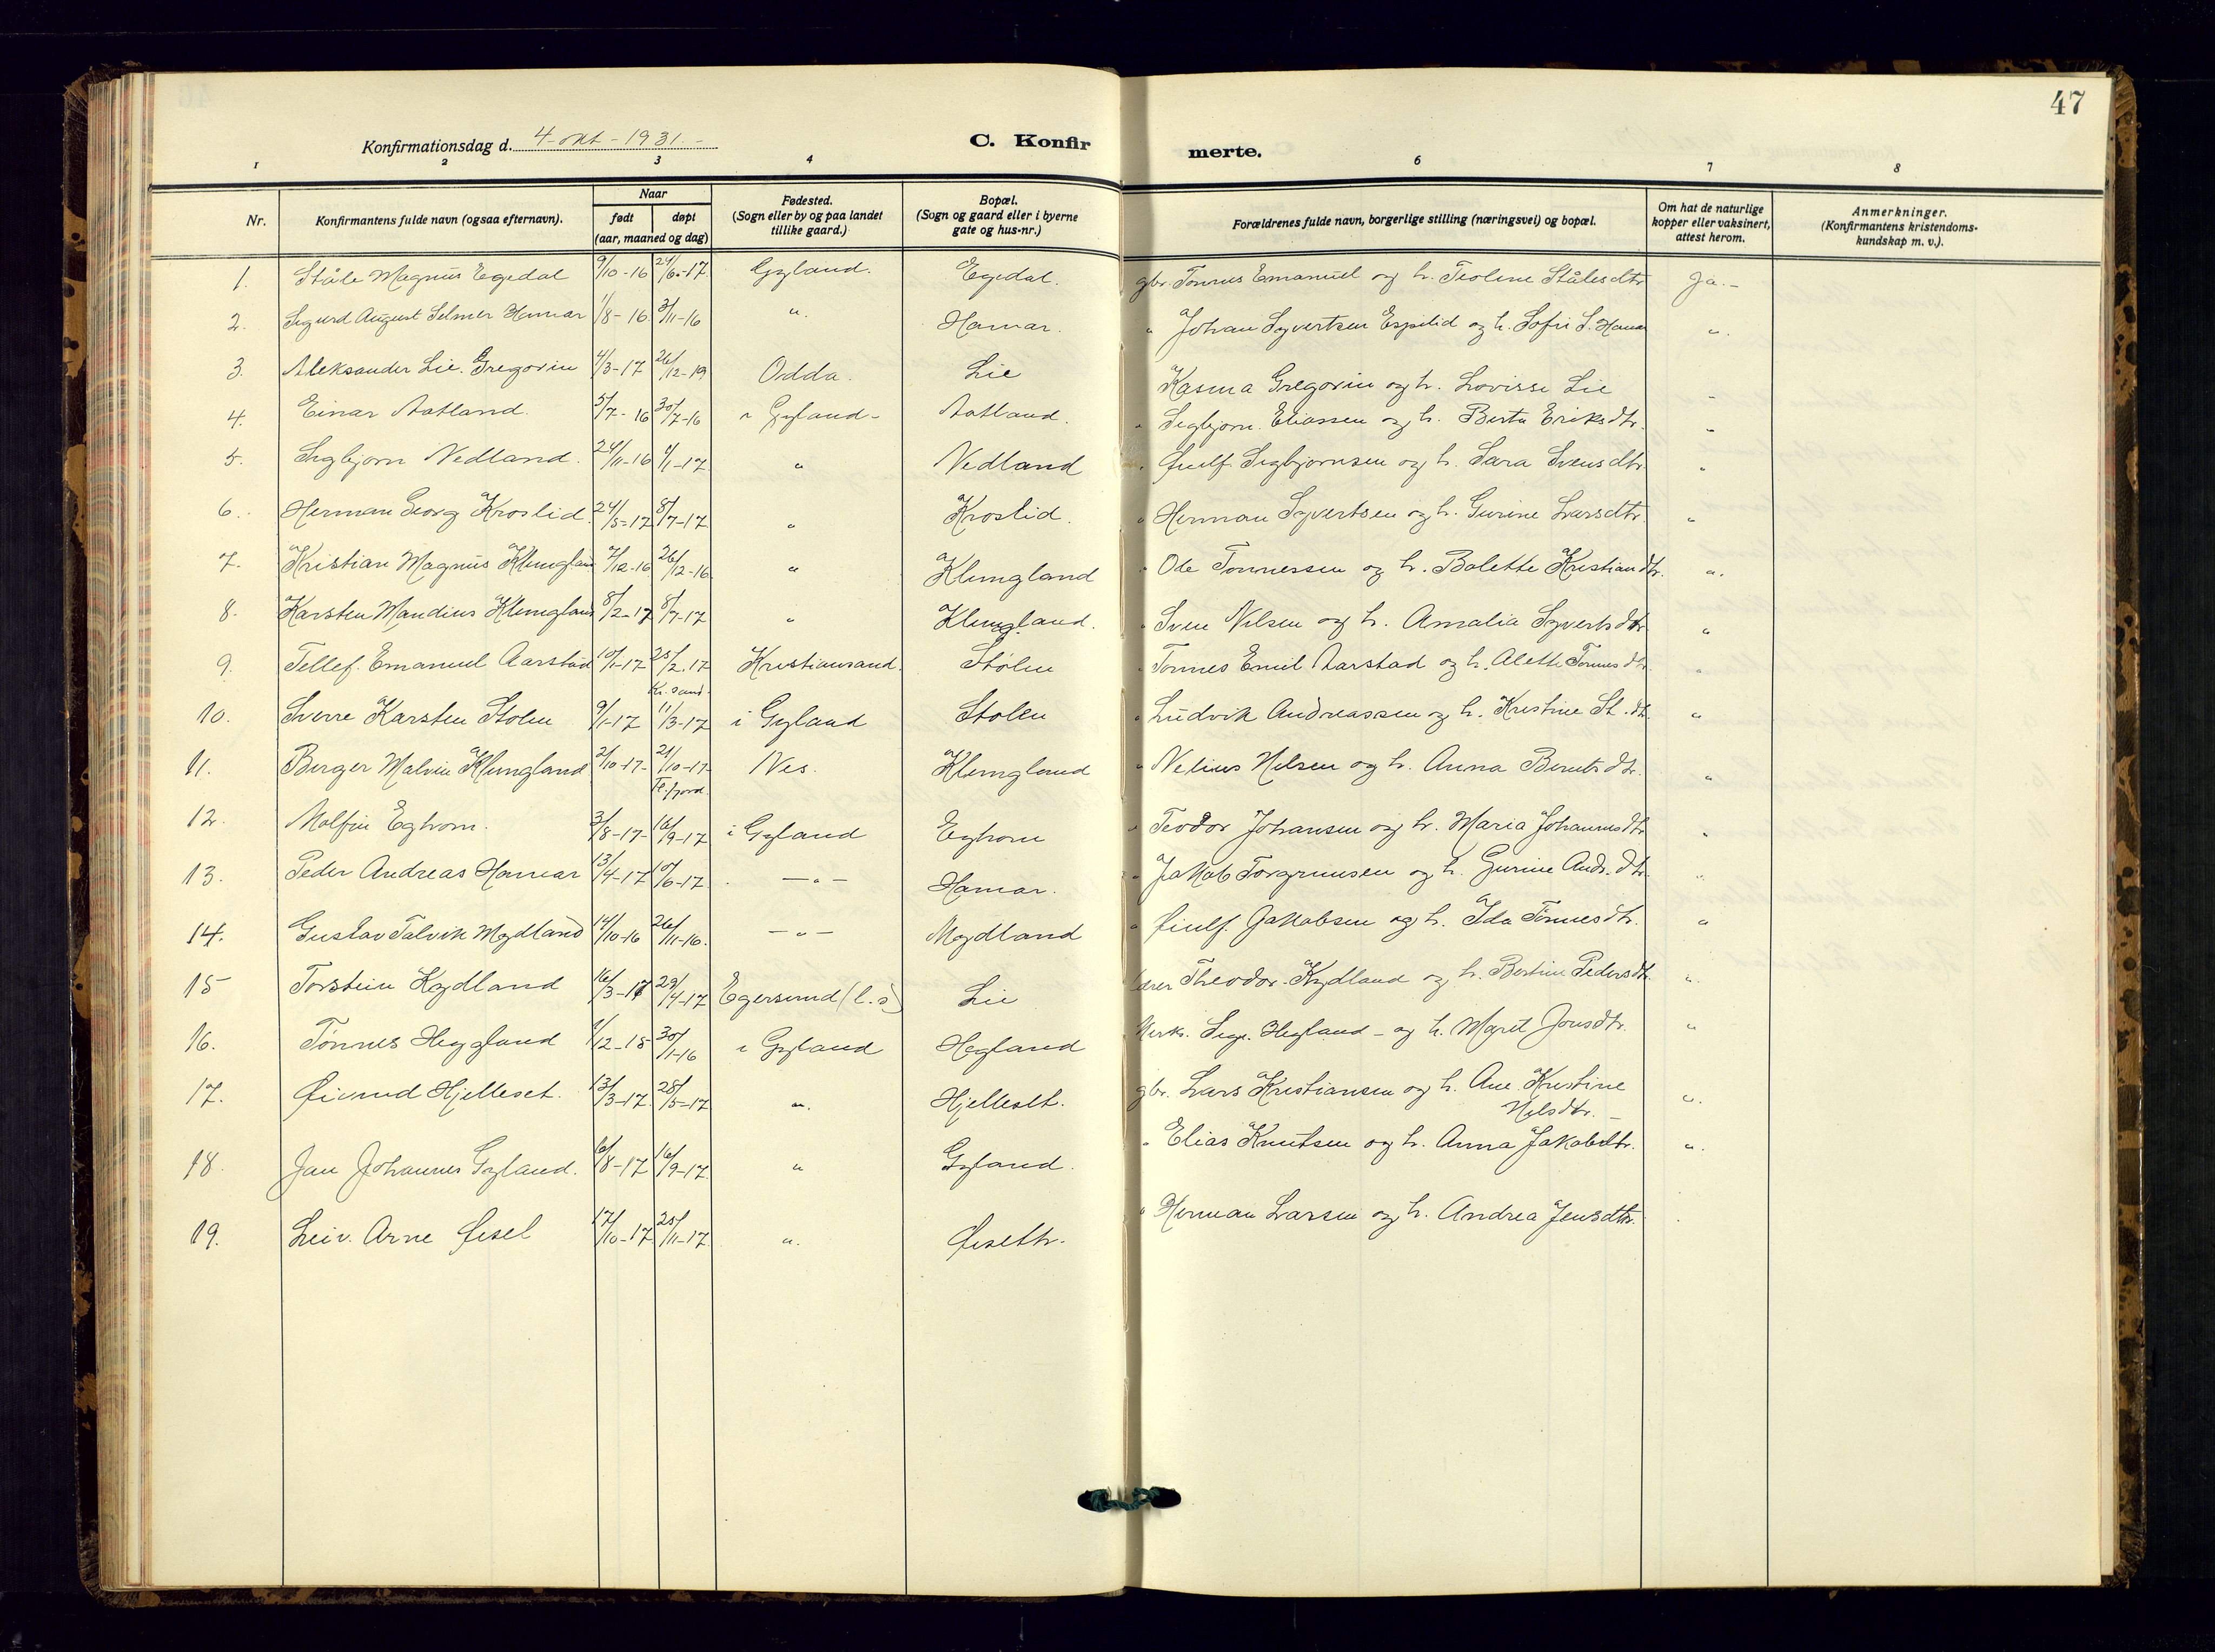 47
Konfirmationsdag d. 4-okt-1931.-
C. Konfirmerte.
1 2 3 4 6 7 8
Nr. Konfirmantens fulde navn (ogsaa efternavn). Naar født døpt (aar, maaned og dag) Fødested. (Sogn eller by og paa landet tillike gaard.) Bopæl. (Sogn og gaard eller i byerne gate og hus-nr.) Forældrenes fulde navn, borgerlige stilling (næringsvei) og bopæl. Om hat de naturlige kopper eller vaksinert, attest herom. Anmerkninger. (Konfirmantens kristendoms-kundskap m. v.).
1. Ståle Magnus Egedal 9/10-16 24/6-17 Gyland. Egedal. gbr. Tønnes Emanuel og h. Teoline Stålesdtr. Ja.-
2. Sigurd August Selmer Hamar 1/8-16 3/11-16 " Hamar. " Johan Syvertsen Espelid og h. Sofie S. Hamar "
3. Aleksander Lie. Gregorin 4/3-17 26/12-19 Odda. Lie Kasma Gregorin og h. Lovisse Lie "
4. Einar Aatland. 5/7-16 30/7-16 i Gyland- Aatland. " Segbjørn. Eliassen og h. Berta Eriksdtr. "
5. Sigbjørn Nedland. 24/11-16 1/1-17 " Nedland " Øiulf Sigbjørnsen og h. Sara Svensdtr. "
6. Herman Georg Kroslid. 24/5-17 8/7-17 " Kroslid. " Herman Syvertsen og h. Gurine Larsdtr. "
7. Kristian Magnus Klungland 7/12-16 26/12-16 " Klungland " Ole Tønnessen og h. Bolette Kristiandtr. "
8. Karsten Mandius Klungland 8/2-17 8/7-17 " Klungland. " Sven Nilsen og h. Amalia Syvertsdtr. "
9. Tellef. Emanuel Aarstad 10/1-17 25/2.17 Kr. sand. Kristiansand. Stølen " Tønnes Emil Aarstad og h. Alette Tønnesdtr. "
10. Sverre Karsten Stølen 9/1-17 11/3-17 i Gyland Stolen " Ludvik Andreassen og h. Kristine St. dtr. "
11. Berger Malvin Klungland 2/10-17- 21/10-17- Fl.fjord. Nes. Klungland " Nelius Nilsen og h. Anna Berntsdtr. "
12. Molfin Eghom. 3/8-17- 16/9-17 i Gyland Eghom " Teodor Johansen og h. Maria Johannesdtr. "
13. Peder Andreas Hamar 13/4-17 10/6-17. -"- Hamar. " Jakob Torgrimsen og h. Gurine Andr. dtr. "
14. Gustav Talvik Mydland 14/10-16 26/11-16. -"- Mydland " Øiulf. Jakobsen og h. Ida Tønnesdtr. "
15 Torstein Kydland 16/3-17 29/4-17 Egersund (l.s) Lie lærer Theodor Kydland og h. Bertine Pedersdtr. "
16. Tønnes Heggland 1/12-15 30/1-16 i Gyland Hegland kirks. Sigv. Hegland - og h. Maret Jonsdtr. "
17. Øivind Hjelleset. 13/3-17 28/5-17 " Hjelleset. gbr. Lars Kristiansen og h. Ane Kristine Nilsdtr. - "
18. Jan Johannes Gyland. 6/8-17 16/9-17. " Gyland. " Elias Knutsen og h. Anna Jakobdtr. "
19. Leiv. Arne Øisel 17/10-17 25/11-17 " Øiseltr. " Herman Larsen og h. Andrea Jensdtr.